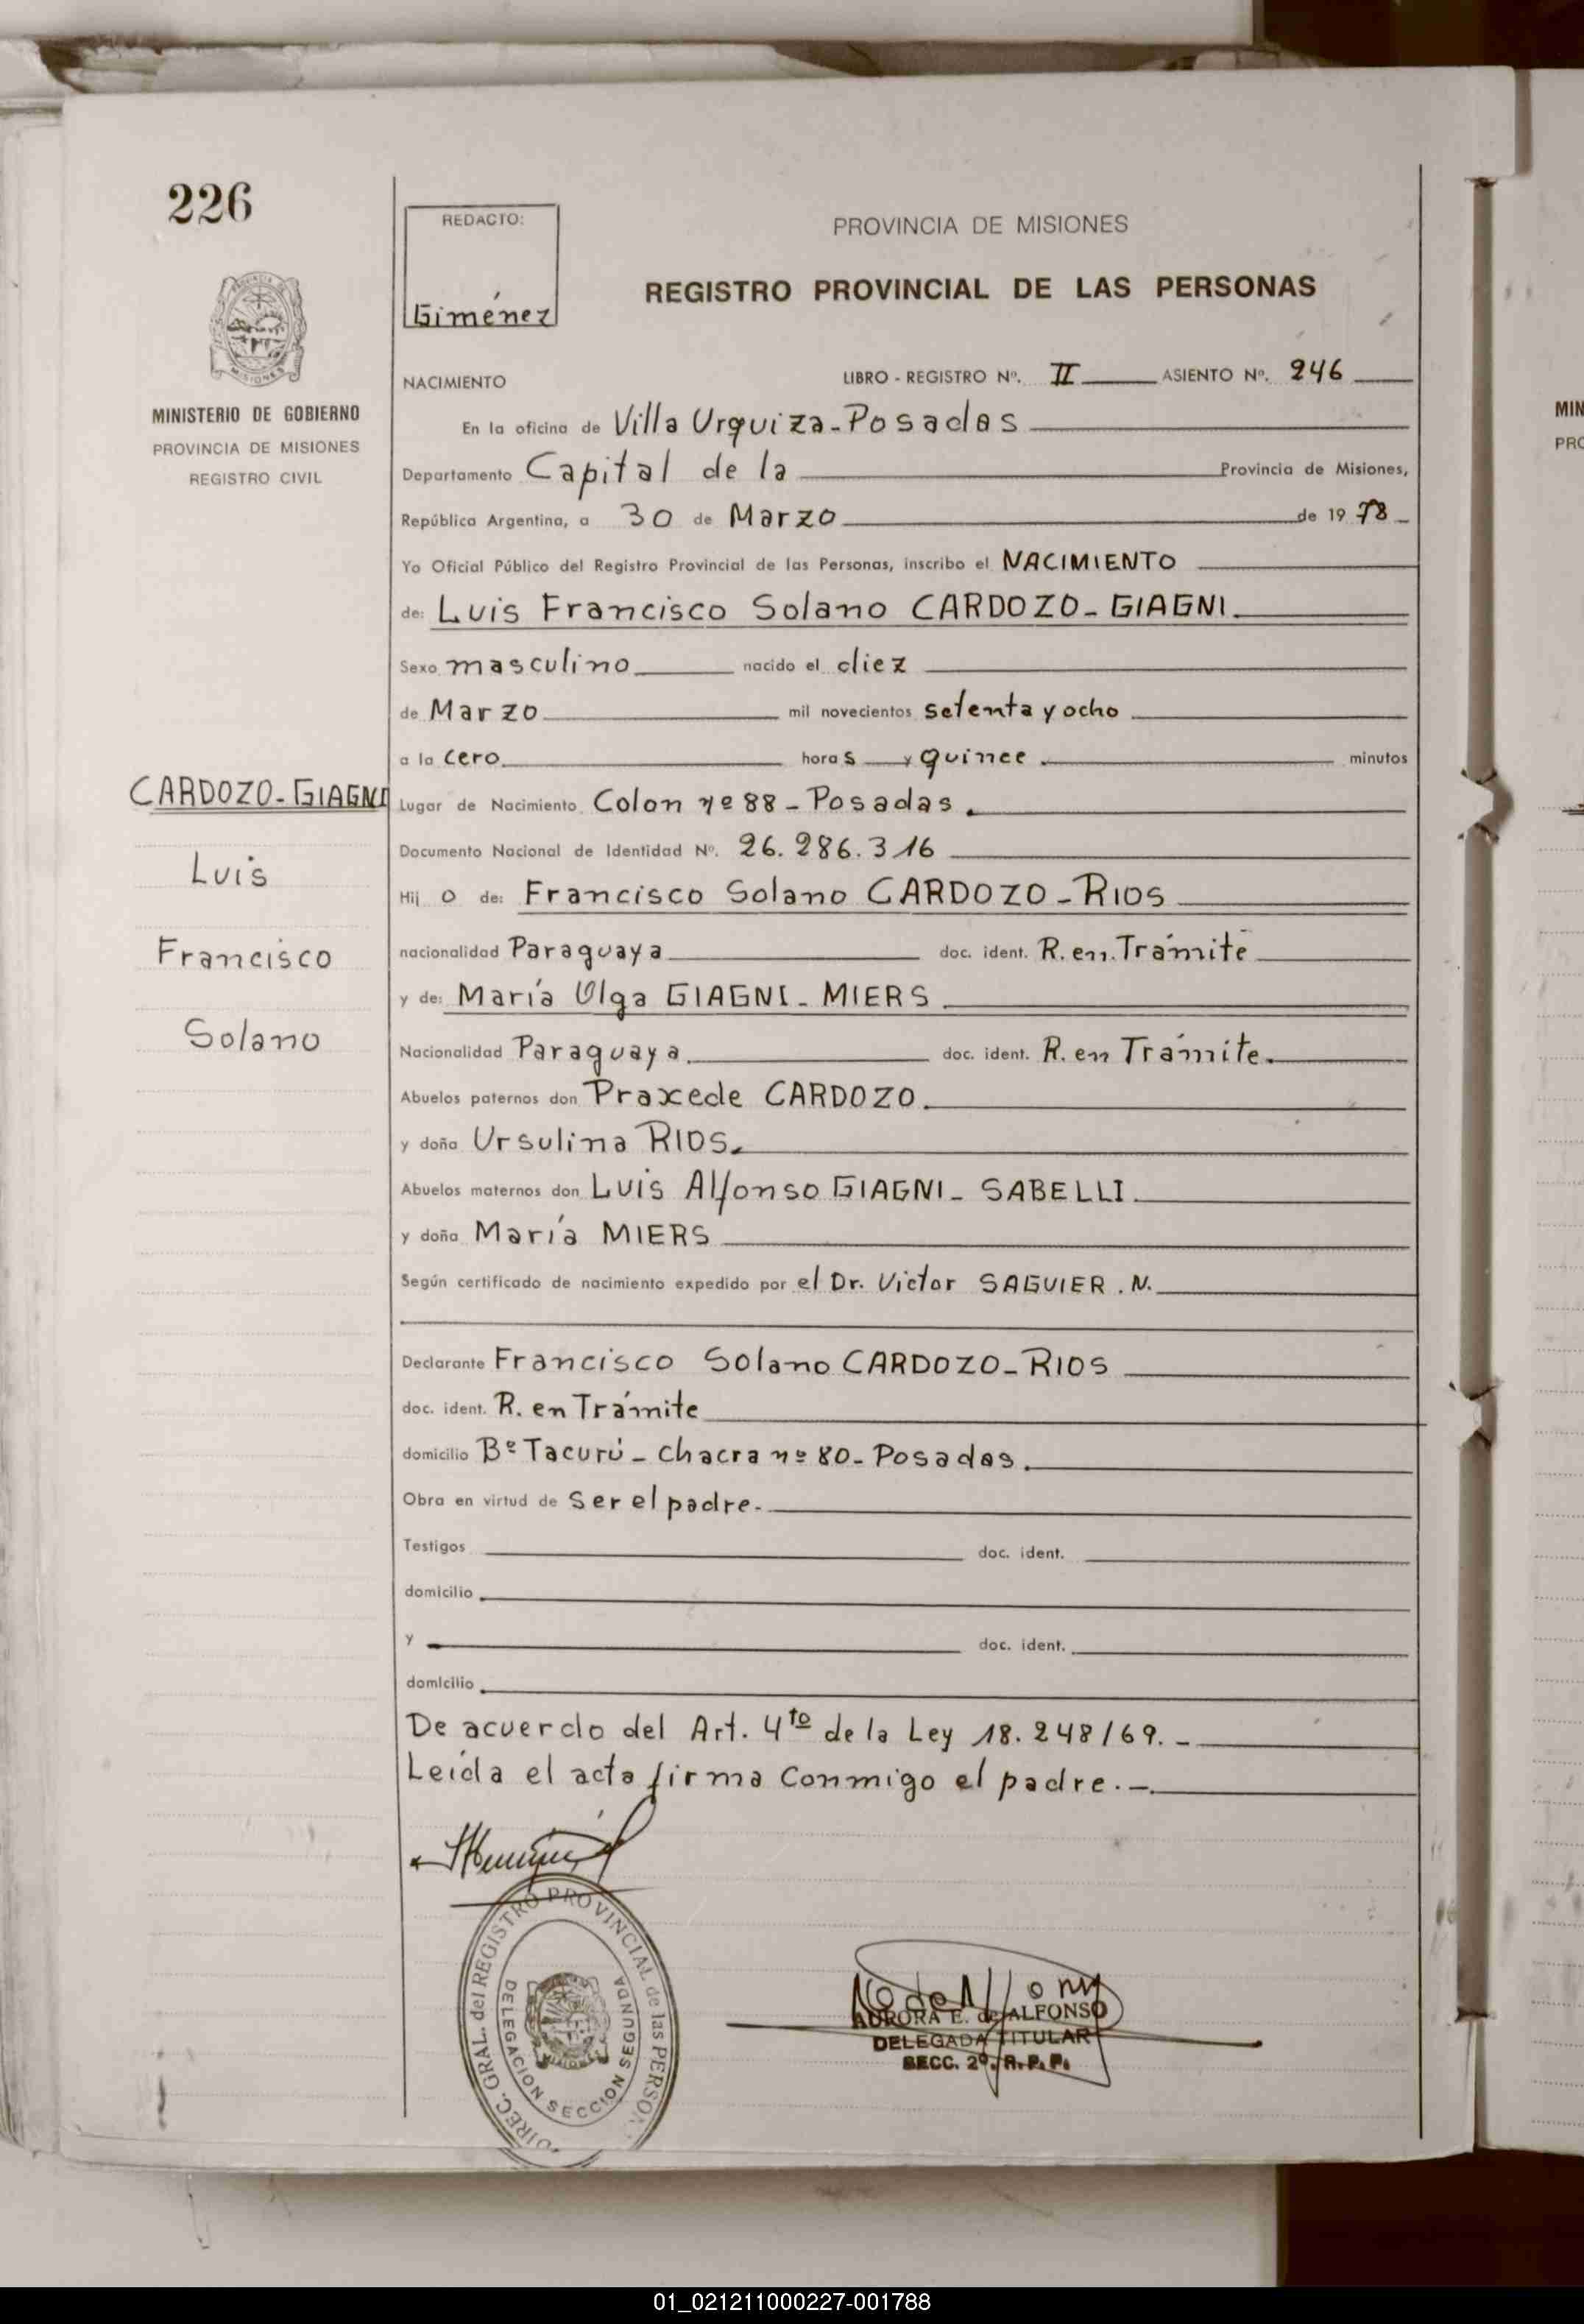 226
REDACTO:
Giménez
PROVINCIA DE MISIONES
REGISTRO PROVINCIAL DE LAS PERSONAS
MISIONES
MINISTERIO DE GOBIERNO
PROVINCIA DE MISIONES
REGISTRO CIVIL
NACIMIENTO LIBRO - REGISTRO Nº. II ASIENTO Nº. 246
En la oficina de Villa Urquiza-Posadas
Departamento Capital de la Provincia de Misiones,
República Argentina, a 30 de Marzo de 1978
Yo Oficial Público del Registro Provincial de las Personas, inscribo el NACIMIENTO
de: Luis Francisco Solano CARDOZO-GIAGNI.
Sexo masculino nacido el diez
de Marzo mil novecientos setenta y ocho
a la cero horas y quince. minutos
CARDOZO-GIAGNI
Luis
Francisco
Solano
Lugar de Nacimiento Colon nº 88 - Posadas.
Documento Nacional de Identidad Nº. 26.286.316
Hij o de: Francisco Solano CARDOZO-RIOS
nacionalidad Paraguaya doc. ident. R. en. Trámite
y de: María Olga GIAGNI-MIERS
Nacionalidad Paraguaya. doc. ident. R. en Trámite.
Abuelos paternos don Praxede CARDOZO.
y doña Ursulina RIOS.
Abuelos maternos don Luis Alfonso GIAGNI-SABELLI.
y doña María MIERS
Según certificado de nacimiento expedido por el Dr. Victor SAGUIER. N.
Declarante Francisco Solano CARDOZO-RIOS
doc. ident. R. en Trámite
domicilio Bº Tacurú - chacra nº 80 - Posadas.
Obra en virtud de Ser el padre.
Testigos doc. ident.
domicilio
y doc. ident.
domicilio
De acuerdo del Art. 4to de la Ley 18.248/69. -
Leída el acta firma Conmigo el padre. -
DIREC. GRAL. del REGISTRO PROVINCIAL de las PERSON
DELEGACION SECCION SEGUNDA
AURORA E. de ALFONSO
DELEGADA TITULAR
SECC. 2º. R. P. P.
MIN
PRO
01_021211000227-001788